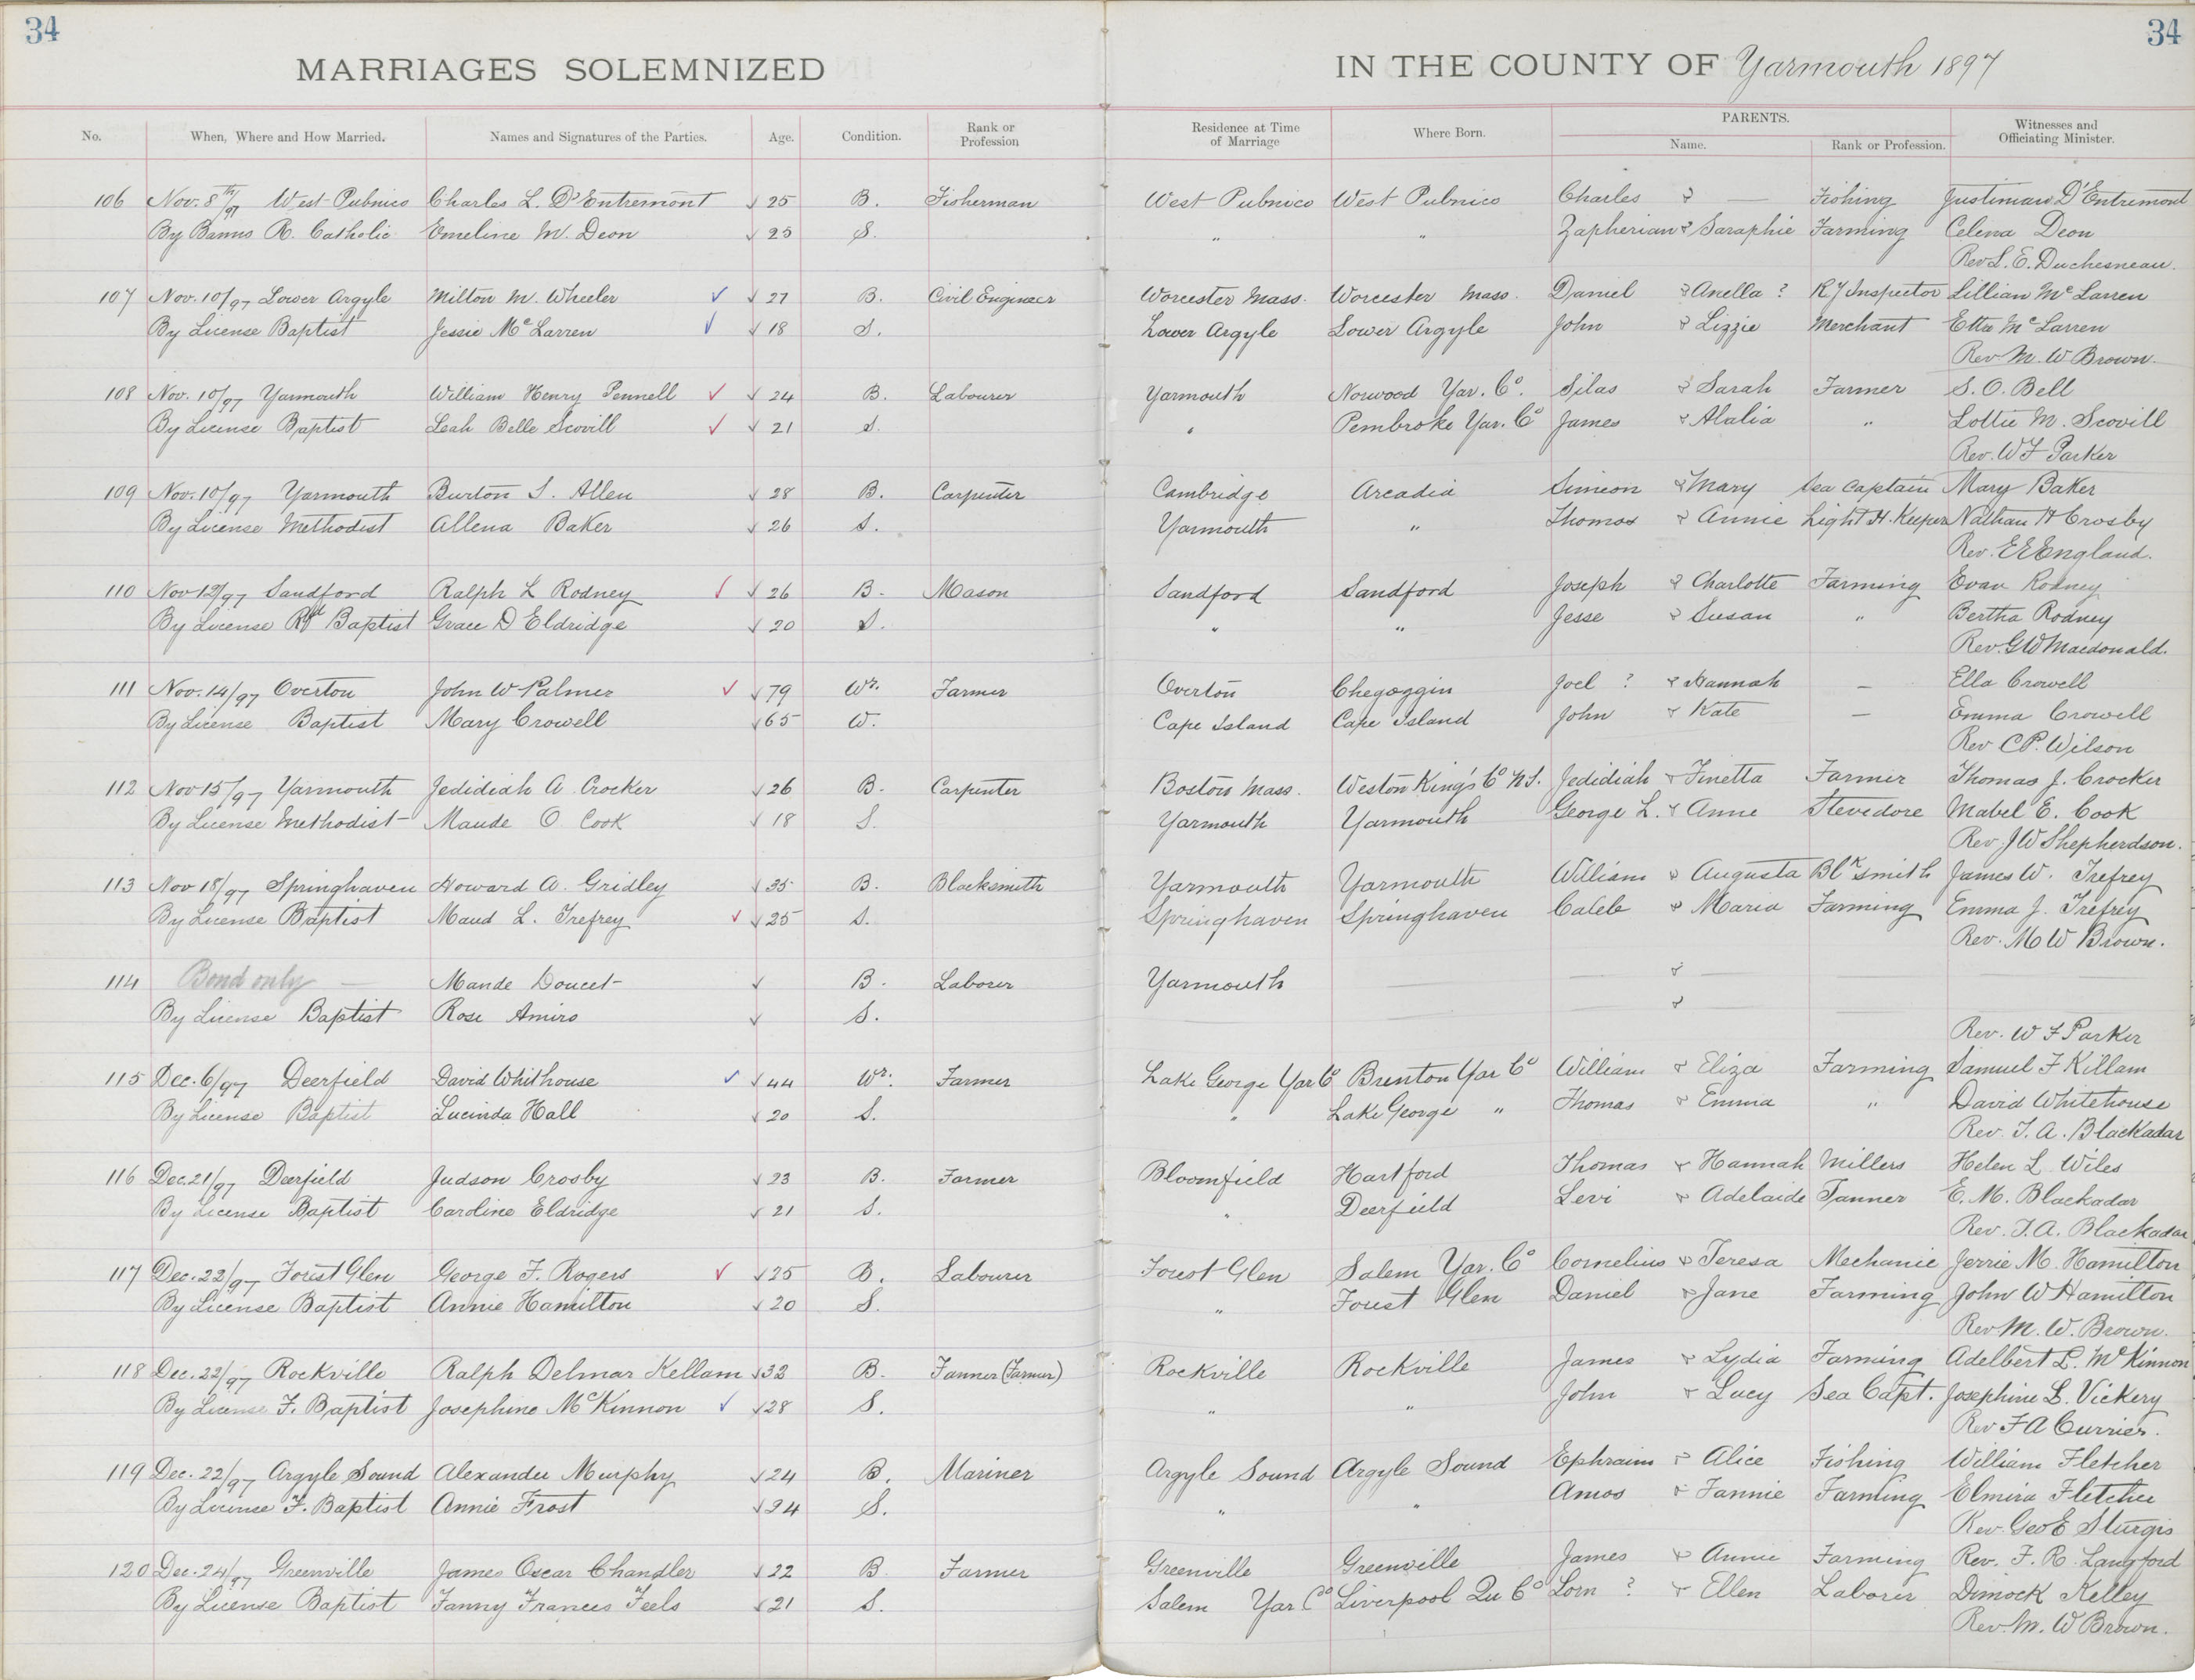 34 34
MARRIAGES SOLEMNIZED IN THE COUNTY OF Yarmouth 1897
No. When, Where and How Married. Names and Signatures of the Parties. Age. Condition. Rank or Profession Residence at Time of Marriage Where Born. PARENTS. Name. Rank or Profession. Witnesses and Officiating Minister.
106 Nov. 8th/97 West Pubnico Charles L. D'Entremont √ 25 B. Fisherman West Pubnico West Pubnico Charles & — Fishing Justiman D'Entremont
By Banns R. Catholic Emeline M. Deon √ 25 S. " " Zapherian & Saraphie Farming Celena Deon
Rev L. E. Duchesneau.
107 Nov. 10/97 Lower Argyle Milton M. Wheeler √ √ 27 B. Civil Engineer Worcester Mass. Worcester Mass. Daniel & Anella ? Ry Inspector Lillian McLarren
By License Baptist Jessie McLarren √ √ 18 S. Lower Argyle Lower Argyle John & Lizzie Merchant Etta McLarren
Rev M. W. Brown.
108 Nov. 10/97 Yarmouth William Henry Pennell √ √ 24 B. Labourer Yarmouth Norwood Yar. Co. Silas & Sarah Farmer S. O. Bell
By License Baptist Leah Belle Scovill √ √ 21 S. " Pembroke Yar. Co James & Atalia " Lottie M. Scovill
Rev. W F Parker
109 Nov. 10/97 Yarmouth Burton S. Allen √ 28 B. Carpenter Cambridge Arcadia Simeon & Mary Sea Captain Mary Baker
By License Methodist Allena Baker √ 26 S. Yarmouth " Thomas & Annie Light H. Keeper Nathan H Crosby
Rev. E E England.
110 Nov 12/97 Sandford Ralph L Rodney √ √ 26 B. Mason Sandford Sandford Joseph & Charlotte Farming Evan Rodney
By License Baptist Grace D Eldridge √ 20 S. " " Jesse & Susan " Bertha Rodney
Rev. G W Macdonald.
111 Nov. 14/97 Overton John W Palmer √ √ 79 Wr. Farmer Overton Chegoggin Joel ? & Hannah — Ella Crowell
By License Baptist Mary Crowell √ 65 W. Cape Island Cape Island John & Kate — Emma Crowell
Rev C P. Wilson
112 Nov 15/97 Yarmouth Jedidiah A. Crocker √ 26 B. Carpenter Boston Mass. Weston King's Co N.S. Jedidiah & Finetta Farmer Thomas J. Crocker
By License Methodist Maude O Cook √ 18 S. Yarmouth Yarmouth George L. & Anne Stevedore Mabel E. Cook
Rev. J W Shepherdson.
113 Nov 18/97 Springhaven Howard A. Gridley √ 35 B. Blacksmith Yarmouth Yarmouth William & Augusta Blksmith James W. Trefrey
By License Baptist Maud L. Trefrey √ √ 25 S. Springhaven Springhaven Caleb & Maria Farming Emma J. Trefrey
Rev. M W Brown.
114 Bond only — Mande Doucet √ B. Laborer Yarmouth — — & — — —
By License Baptist Rose Amiro √ S. — — & — —
Rev. W F Parker
115 Dec. 6/97 Deerfield David Whithouse √ √ 44 Wr. Farmer Lake George Yar Co Brenton Yar Co William & Eliza Farming Samuel F Killam
By License Baptist Lucinda Hall √ 20 S. " Lake George " Thomas & Emma " David Whitehouse
Rev. T. A. Blackadar
116 Dec. 21/97 Deerfield Judson Crosby √ 23 B. Farmer Bloomfield Hartford Thomas & Hannah Millers Helen L Wiles
By License Baptist Caroline Eldridge √ 21 S. " Deerfield Levi & Adelaide Tanner E. M. Blackadar
Rev. T. A. Blackadar
117 Dec. 22/97 Forest Glen George F. Rogers √ √ 25 B. Labourer Forest Glen Salem Yar. Co Cornelius & Teresa Mechanic Jerrie M. Hamilton
By License Baptist Annie Hamilton √ 20 S. " Forest Glen Daniel & Jane Farming John W Hamilton
Rev. M. W. Brown.
118 Dec. 22/97 Rockville Ralph Delmar Kellam √ 32 B. Fanner (Farmer) Rockville Rockville James & Lydia Farming Adelbert L. McKinnon
By License F. Baptist Josephine McKinnon √ √ 28 S. " " John & Lucy Sea Capt. Josephine L. Vickery
Rev F A Currier.
119 Dec. 22/97 Argyle Sound Alexander Murphy √ 24 B. Mariner Argyle Sound Argyle Sound Ephraim & Alice Fishing William Fletcher
By License F. Baptist Annie Frost √ 24 S. " " Amos & Fannie Farming Elmira Fletcher
Rev. Geo E Sturgis
120 Dec. 24/97 Greenville James Oscar Chandler √ 22 B Farmer Greenville Greenville James & Annie Farming Rev. F. R. Langford
By License Baptist Fanny Frances Feels √ 21 S. Salem Yar Co Liverpool Qu Co Lorn ? & Ellen Laborer Dimock Kelley
Rev. M. W Brown.